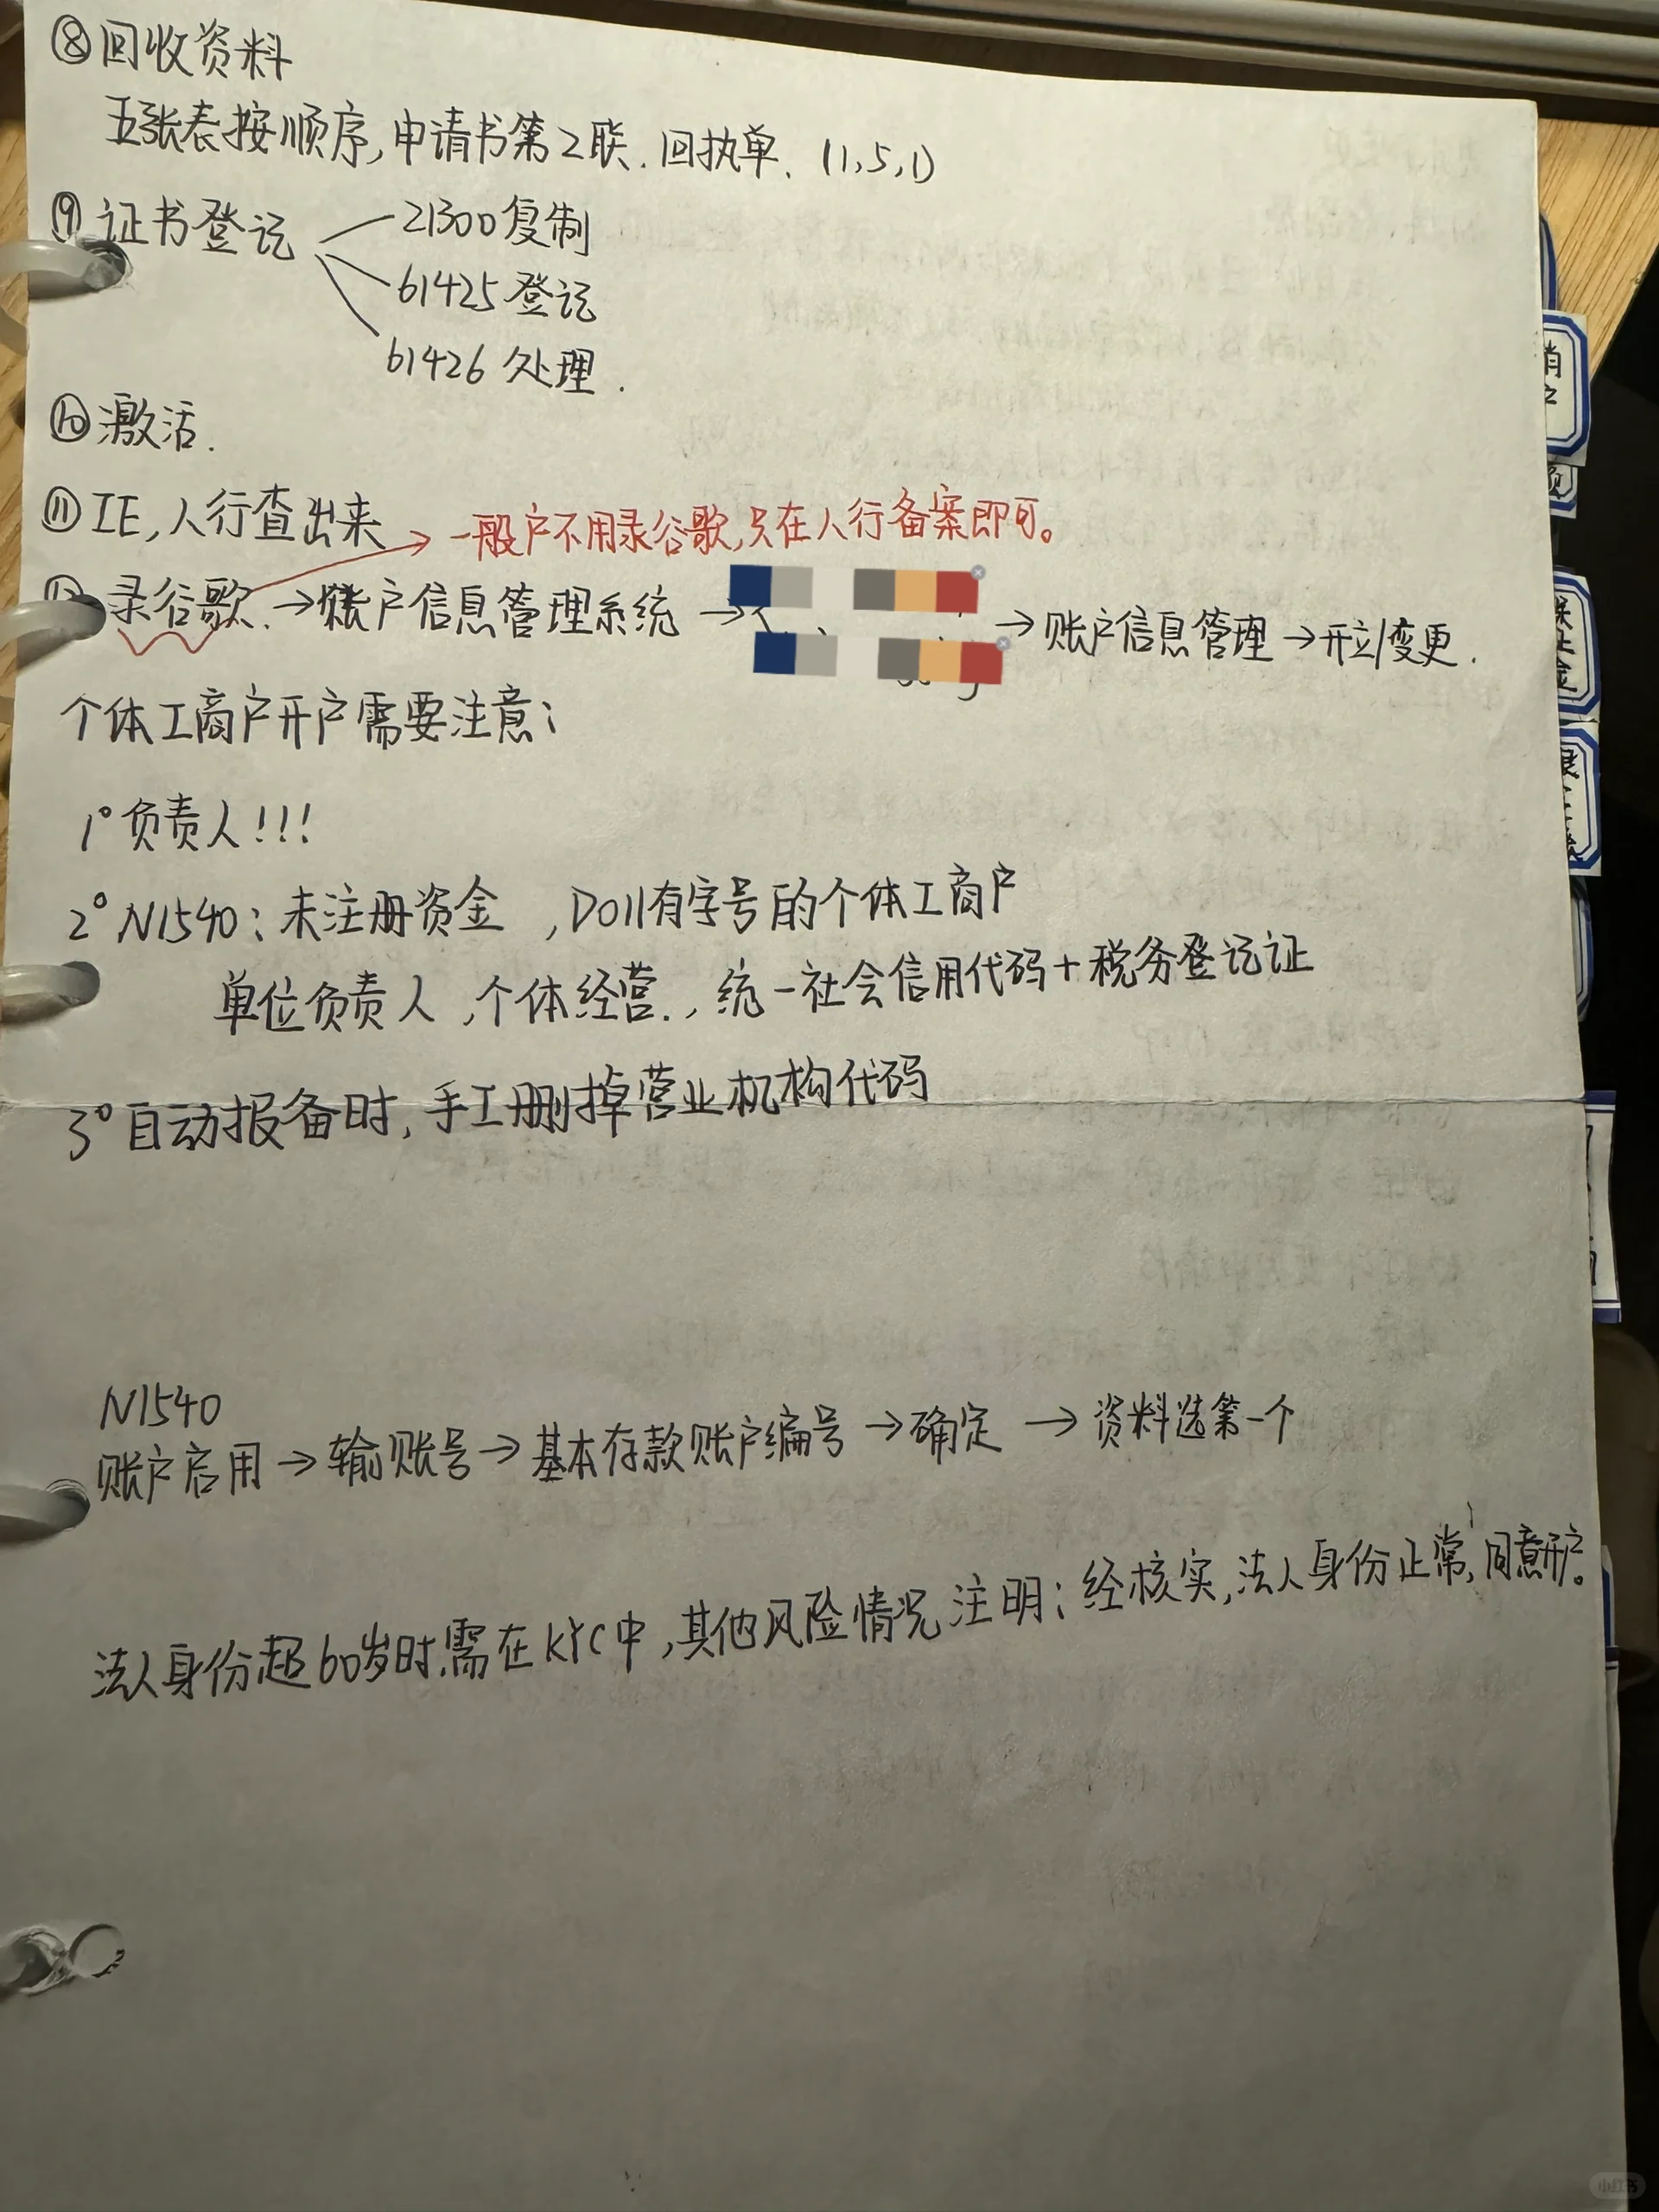 ⑧回收资料
五张表按顺序,申请书第2联.回执单.(1,5,1)
⑨证书登记
21300复制
61425登记
61426处理.
⑩激活.
⑪IE,人行查出来
→一般户不用录谷歌,只在人行备案即可。
录谷歌.→账户信息管理系统→
→账户信息管理→开立/变更.
个体工商户开户需要注意:
1°负责人!!!
2°N1540:未注册资金,D011有字号的个体工商户
单位负责人,个体经营.,统一社会信用代码+税务登记证
3°自动报备时,手工删掉营业机构代码
N1540
账户启用→输账号→基本存款账户编号→确定→资料选第一个
法人身份超60岁时.需在KYC中,其他风险情况注明:经核实,法人身份正常,同意开户。
销户
小红书